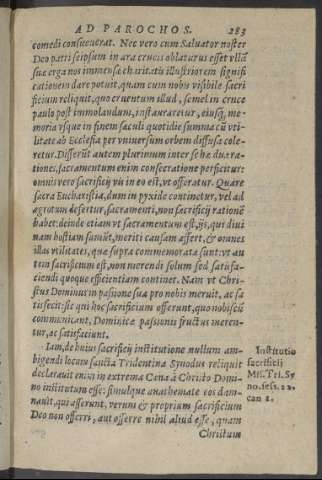 AD PAROCHOS. 283
comedi consueuerat. Nec vero cum Saluator noster
Deo patri seipsum in ara crucis oblaturus esset vllā
suæ erga nos immensæ charitatis illustriorem signifi
cationem dare potuit, quam cum nobis visibile sacri
ficium reliquit, quo cruentum illud, semel in cruce
paulo post immolandum, instauraretur, eiusq; me-
moria vsque in finem sæculi quotidie summa cū vti-
litate ab Ecclesia per vniuersum orbem diffusa cole-
retur. Differūt autem plurimum inter se hæ duæ ra-
tiones, sacramentum enim consecratione perficitur:
omnis vero sacrificij vis in eo est, vt offeratur. Quare
sacra Eucharistia, dum in pyxide continetur, vel ad
ægrotum defertur, sacramenti, non sacrificij rationē
habet: deinde etiam vt sacramentum est, ijs, qui diui
nam hostiam sumūt, meriti causam affert, & omnes
illas vtilitates, quæ supra commemoratæ sunt: vt au
tem sacrificium est, non merendi solum sed satisfa-
ciendi quoque efficientiam continet. Nam vt Chri-
stus Dominus in passione sua pro nobis meruit, ac sa
tisfecit: sic qui hoc sacrificium offerunt, quo nobiscū
communicant, Dominicæ passionis fructus meren-
tur, ac satisfaciunt.
Iam, de huius sacrificij institutione nullum am-
bigendi locum sancta Tridentina Synodus reliquit
declarauit enim in extrema Cena à Christo Domi-
no institutum esse: simulque anathemate eos dam-
nauit, qui asserunt, verum & proprium sacrificium
Deo non offerri, aut offerre nihil aliud esse, quam
Christum
Institutio
sacrificij
Mis. Tri. Sy
no. sess. 22.
can 1.